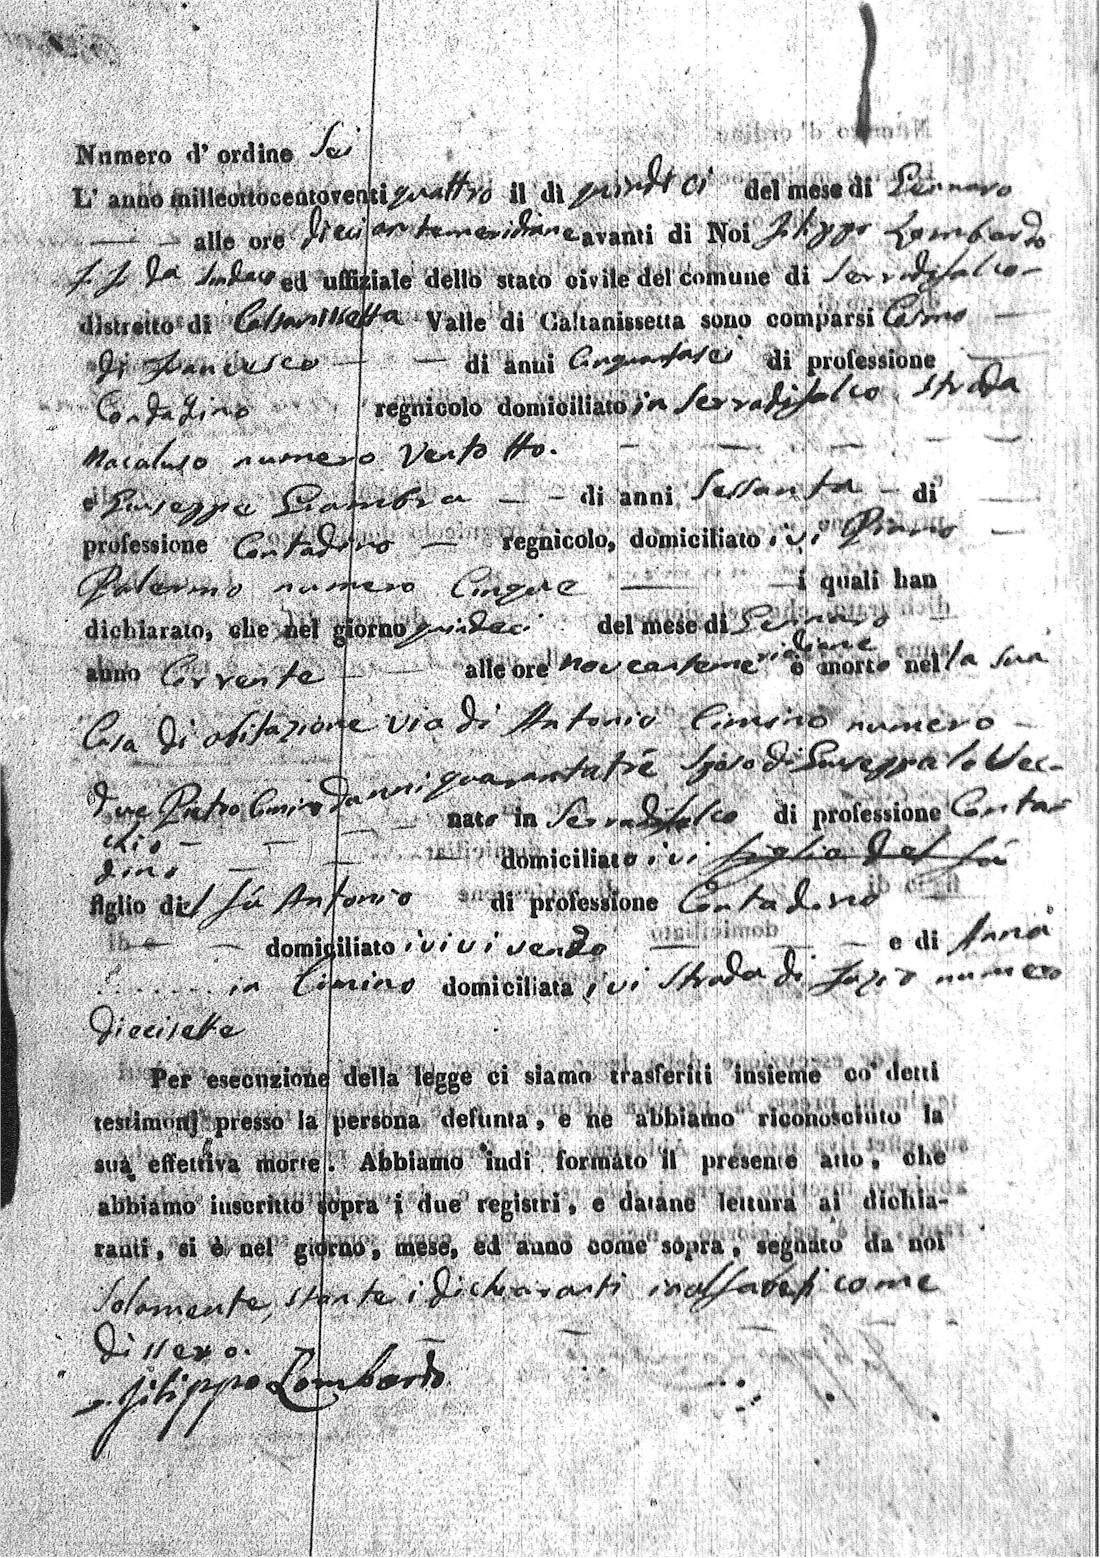 Numero d' ordine Sei
L' anno milleottocentoventi quattro il dì quindici del mese di Gennaro
alle ore dieci antemeridiane avanti di Noi Filippo Lombardo
f. f. da Sindaco ed uffiziale dello stato civile del comune di Serradifalco
distretto di Caltanissetta Valle di Caltanissetta sono comparsi Cosmo
di Francesco di anni Cinquantasei di professione
Contadino regnicolo domiciliato in Serradifalco Strada
Macaluso numero Ventotto.
e Giuseppe Giambra di anni Sessanta di
professione Contadino regnicolo, domiciliato ivi Piano
Palermo numero Cinque i quali han
dichiarato, che nel giorno quindeci del mese di Gennaro
anno Corrente alle ore nove antemeridiane è morto nella sua
Casa di abitazione via di Antonio Cimino numero
due Pietro Cimino d'anni quarantatré Sposo di Giuseppa lo Vec-
chio nato in Serradifalco di professione Conta-
dino domiciliato ivi figlio del fú
figlio del fú Antonio di professione Contadino
domiciliato ivi vivendo e di Anna
....... in Cimino domiciliata ivi Strada di numero
diecisette
Per esecuzione della legge ci siamo trasferiti insieme co' detti
testimonj presso la persona defunta, e ne abbiamo riconosciuto la
sua effettiva morte. Abbiamo indi formato il presente atto, che
abbiamo inscritto sopra i due registri, e datane lettura ai dichia-
ranti, si è nel giorno, mese, ed anno come sopra, segnato da noi
Solamente, stante i dichiaranti come
dissero.
Filippo Lombardo